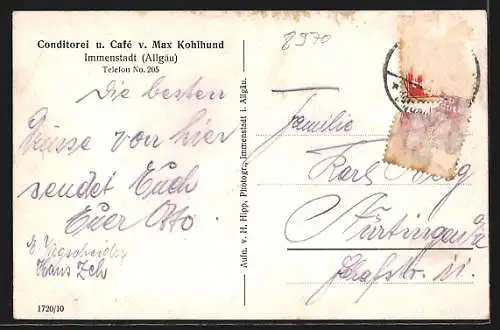 Conditorei u. Café v. Max Kohlhund
Immenstadt (Allgäu)
Telefon No. 205
2970
Die besten
Grüsse von hier
sendet Euch
Euer Otto.
Hans Zeh
1720/10
Aufn. v. H. Hipp, Photogr., Immenstadt i. Allgäu.
Familie
Karl
Nürtingen a/N
Schafstr. 11.